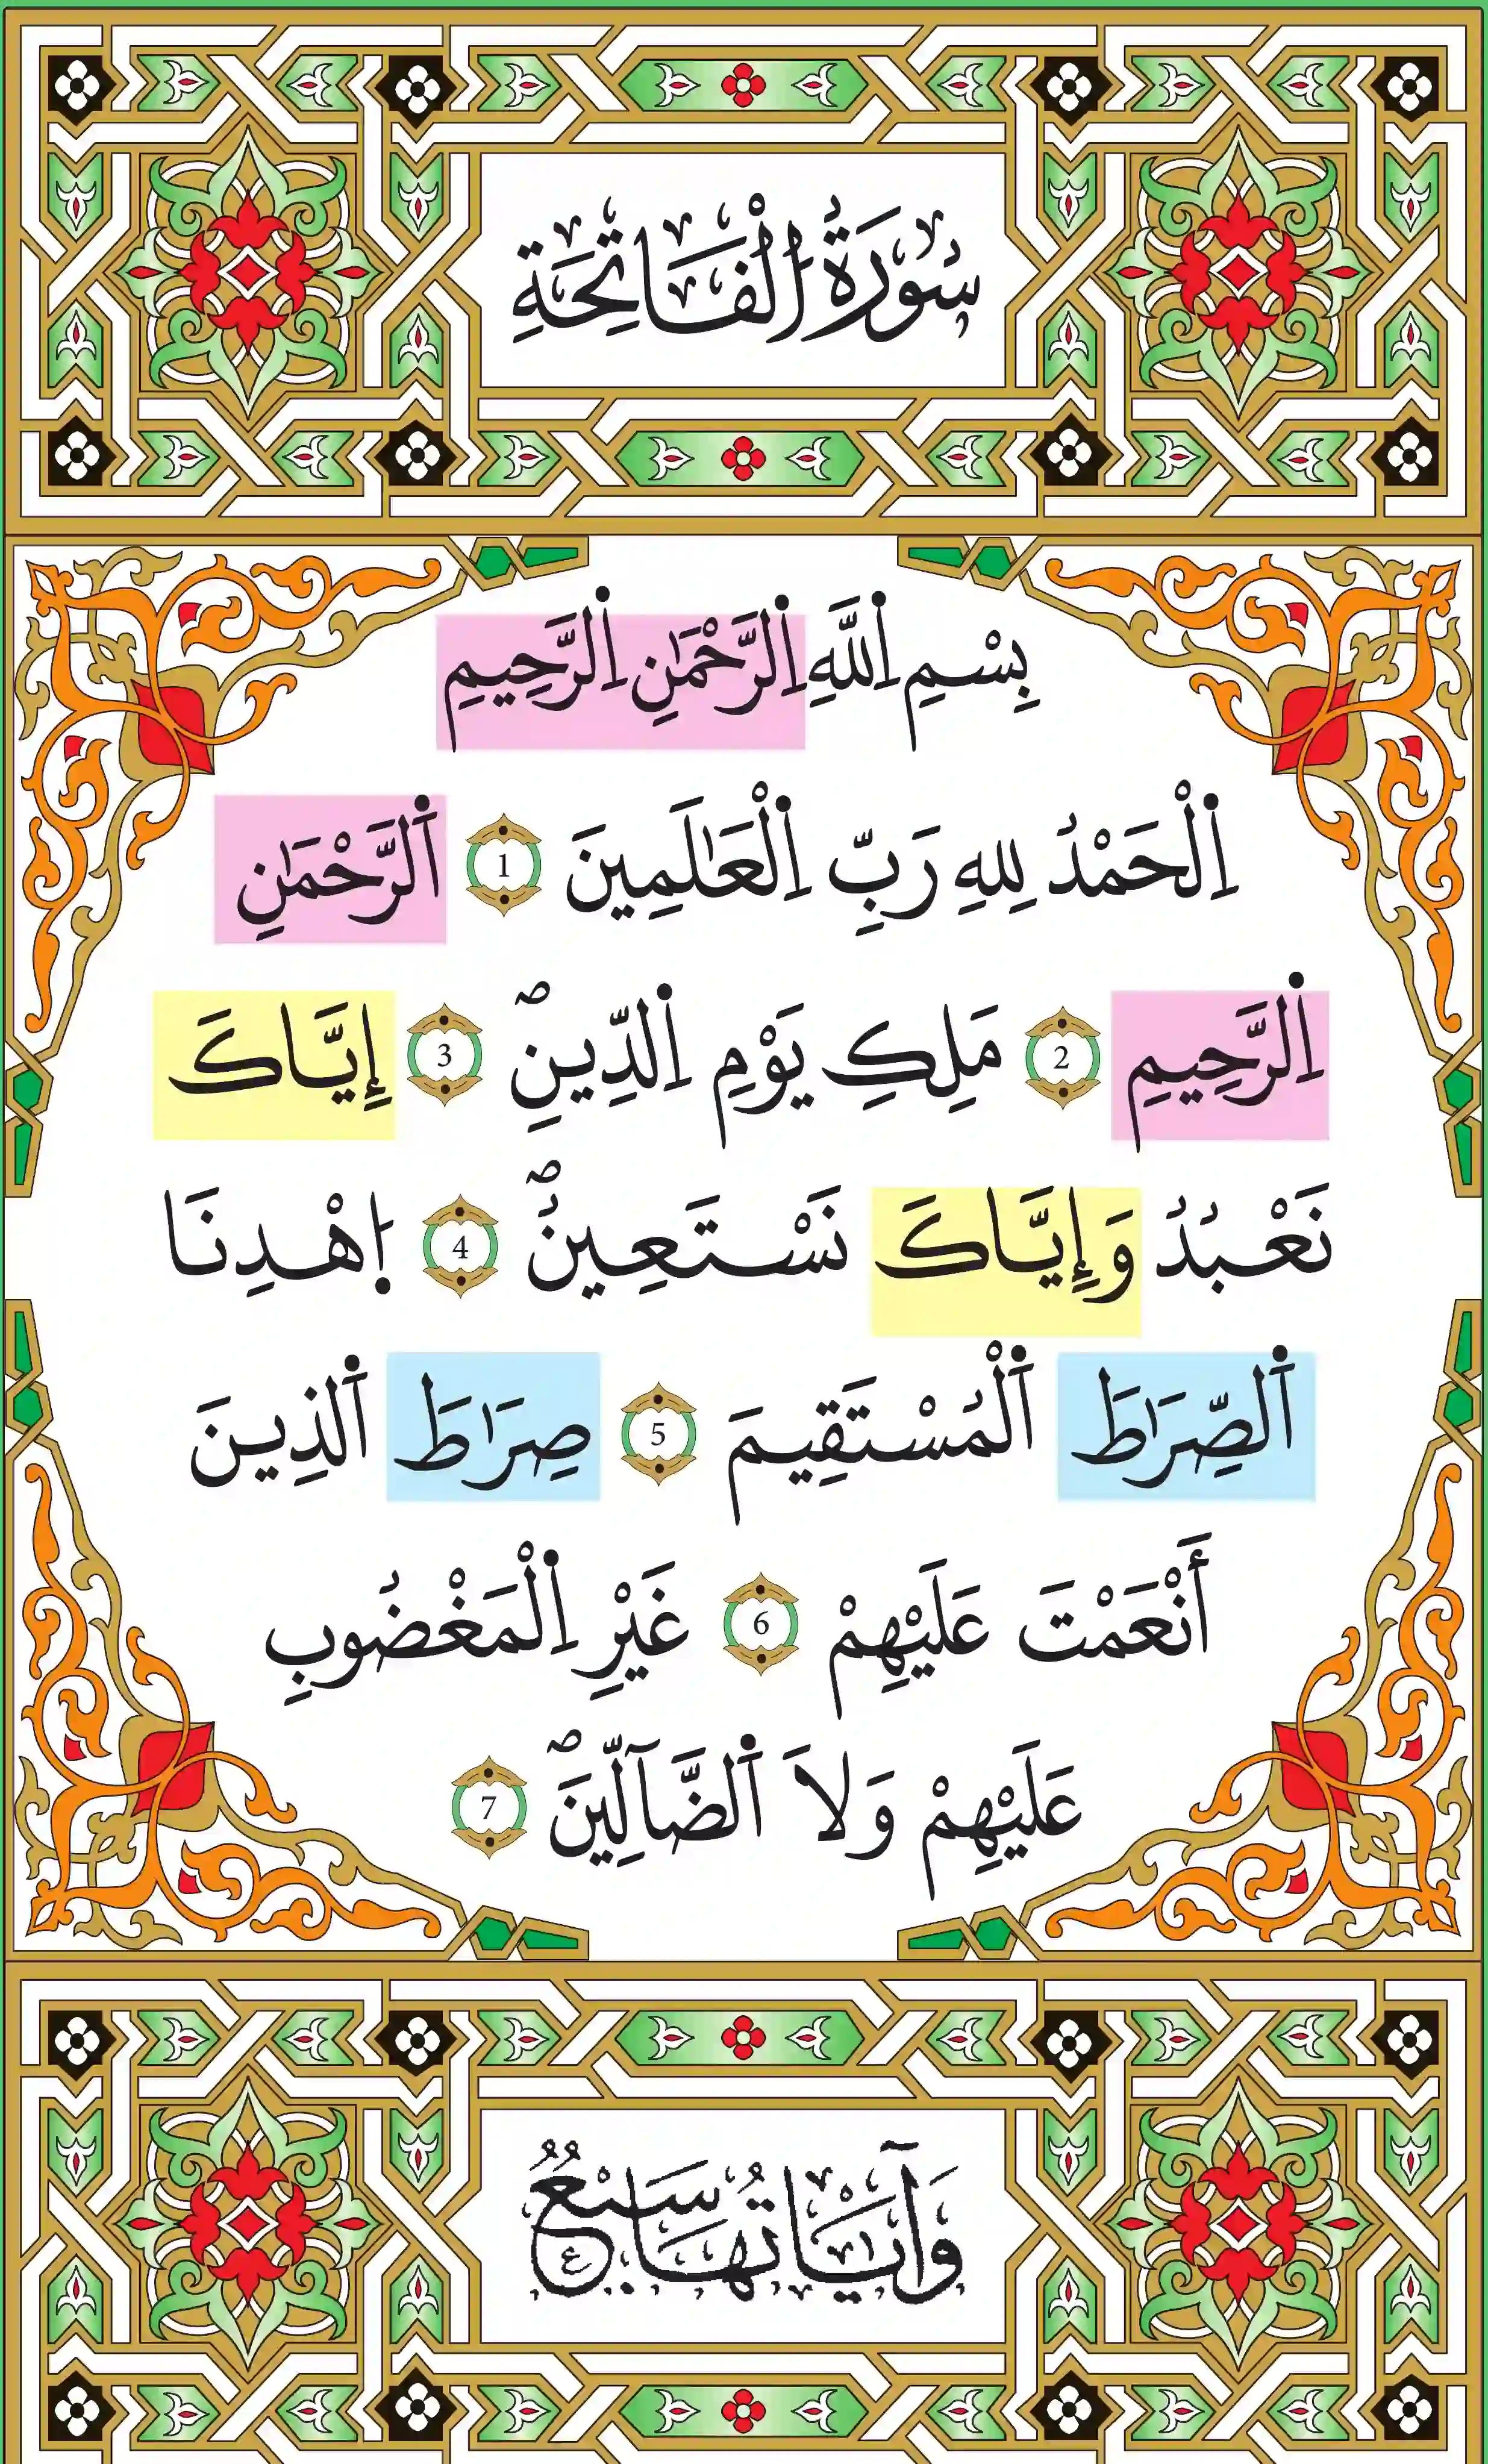 سُورَةُ الْفَاتِحَةِ
بِسْمِ اِللَّهِ اِلرَّحْمَٰنِ اِلرَّحِيمِ
اِلْحَمْدُ لِلهِ رَبِّ اِلْعَٰلَمِينَ 1 اَلرَّحْمَٰنِ
اِلرَّحِيمِ 2 مَلِكِ يَوْمِ اِلدِّينِۖ 3 إِيَّاكَ
نَعْبُدُ وَإِيَّاكَ نَسْتَعِينُۖ 4 اِهْدِنَا
اَلصِّرَٰطَ اَلْمُسْتَقِيمَ 5 صِرَٰطَ اَلذِينَ
أَنْعَمْتَ عَلَيْهِمْ 6 غَيْرِ اِلْمَغْضُوبِ
عَلَيْهِمْ وَلَا اَلضَّآلِّينَۖ 7
وَآيَاتُهَا سَبْعٌ